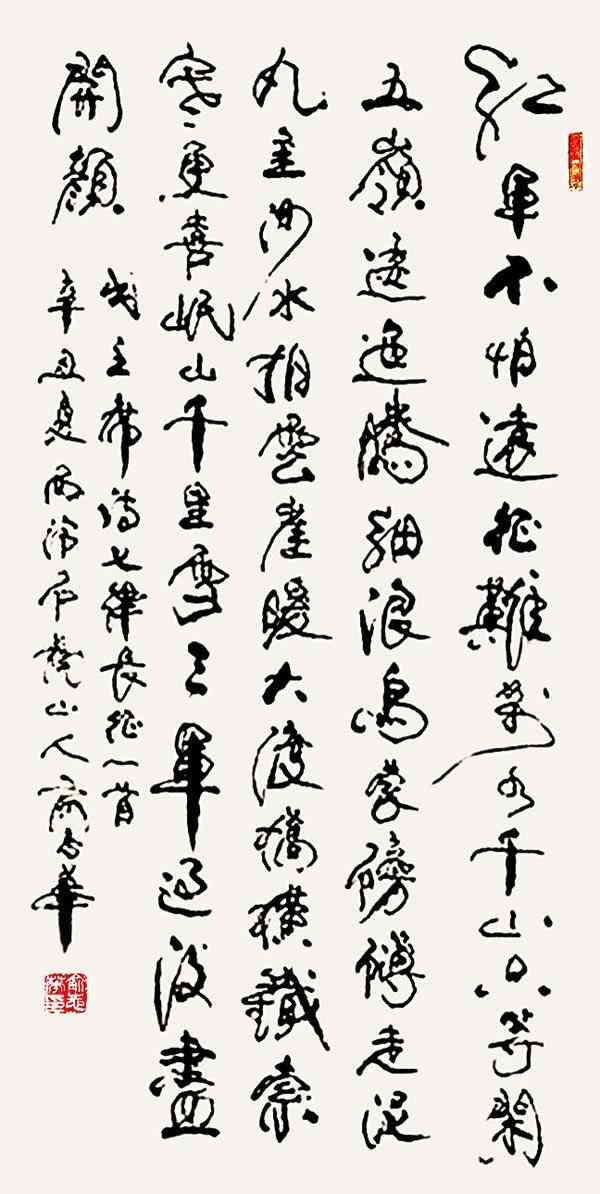 紅軍不怕遠征難萬水千山只等閑
五嶺逶迤騰細浪烏蒙磅礴走泥
丸金沙水拍雲崖暖大渡橋橫鐵索
寒更喜岷山千里雪三軍過後盡
開顏
毛主席詩七律長征一首
辛丑夏山人俞華